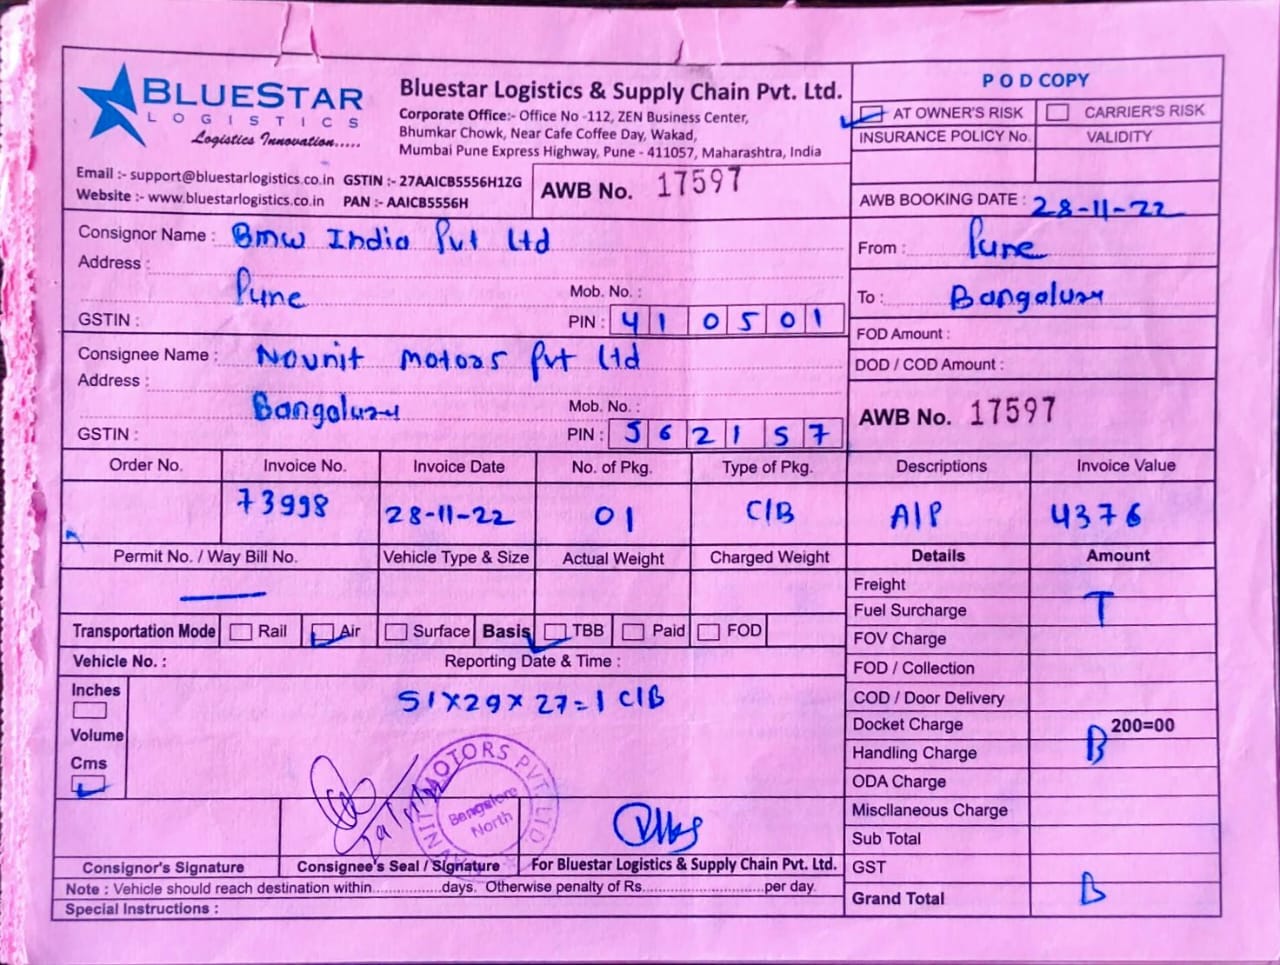 BLUESTAR
LOGISTICS
Logistics Innovation.....
Bluestar Logistics & Supply Chain Pvt. Ltd.
Corporate Office:- Office No -112, ZEN Business Center,
Bhumkar Chowk, Near Cafe Coffee Day, Wakad,
Mumbai Pune Express Highway, Pune - 411057, Maharashtra, India
Email :- support@bluestarlogistics.co.in GSTIN :- 27AAICB5556H1ZG
Website :- www.bluestarlogistics.co.in PAN :- AAICB5556H
AWB No. 17597
POD COPY
AT OWNER'S RISK CARRIER'S RISK
INSURANCE POLICY No. VALIDITY
AWB BOOKING DATE : 28-11-22
Consignor Name : Bmw India Pvt Ltd
Address :
Pune
Mob. No. :
GSTIN : PIN : 410501
From : Pune
To : Bangaluru
Consignee Name : Nounit Motors Pvt Ltd
Address :
Bangaluru
Mob. No. :
GSTIN : PIN : 562157
FOD Amount :
DOD / COD Amount :
AWB No. 17597
Order No. Invoice No. Invoice Date No. of Pkg. Type of Pkg. Descriptions Invoice Value
73998 28-11-22 01 C/B A/P 4376
Permit No. / Way Bill No. Vehicle Type & Size Actual Weight Charged Weight Details Amount
Transportation Mode Rail Air Surface Basis TBB Paid FOD
Vehicle No. : Reporting Date & Time :
Inches
Volume
Cms
51x29x27=1 C/B
Freight
Fuel Surcharge T
FOV Charge
FOD / Collection
COD / Door Delivery
Docket Charge 200=00
Handling Charge B
ODA Charge
Miscllaneous Charge
Sub Total
GST
Grand Total B
ANNIT MOTORS PVT. LTD
Bangalore
North
Consignor's Signature Consignee's Seal / Signature For Bluestar Logistics & Supply Chain Pvt. Ltd.
Note : Vehicle should reach destination within................days. Otherwise penalty of Rs............................per day.
Special Instructions :